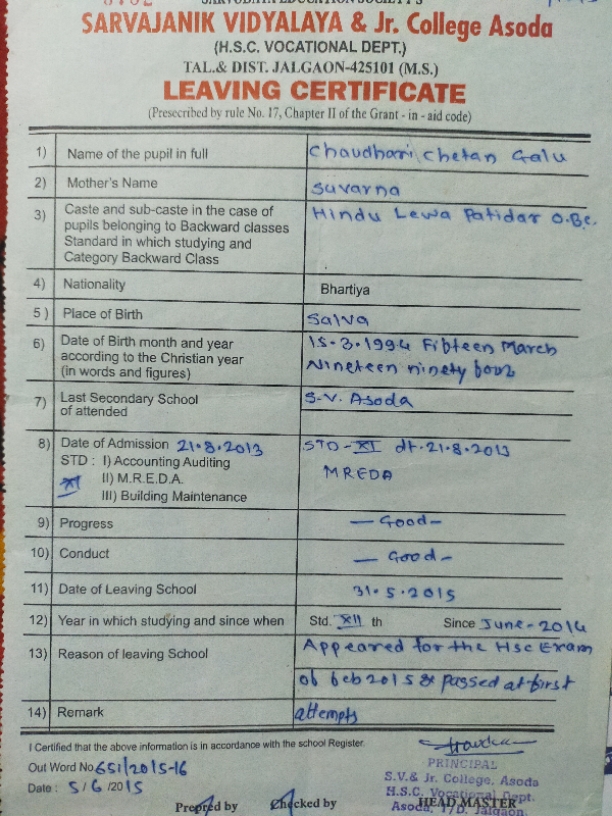 SARVAJANIK VIDYALAYA & Jr. College Asoda
(H.S.C. VOCATIONAL DEPT.)
TAL.& DIST. JALGAON-425101 (M.S.)
LEAVING CERTIFICATE
(Presecribed by rule No. 17, Chapter II of the Grant - in - aid code)
1) Name of the pupil in full Chaudhari Chetan Galu
2) Mother's Name Suvarna
3) Caste and sub-caste in the case of Hindu Lewa Patidar O.B.C.
pupils belonging to Backward classes
Standard in which studying and
Category Backward Class
4) Nationality Bhartiya
5 ) Place of Birth Salva
6) Date of Birth month and year 15.3.1994 Fifteen March
according to the Christian year Nineteen ninety four
(in words and figures)
7) Last Secondary School S.V. Asoda
of attended
8) Date of Admission 21.8.2013 STD - XI dt. 21.8.2013
STD : I) Accounting Auditing
XI II) M.R.E.D.A. MREDA
III) Building Maintenance
9) Progress — Good —
10) Conduct — Good —
11) Date of Leaving School 31.5.2015
12) Year in which studying and since when Std. XII th Since June - 2014
13) Reason of leaving School Appeared for the Hsc Exam
of feb 2015 & passed at first
14) Remark attempts
I Certified that the above information is in accordance with the school Register.
Out Word No 651/2015-16
PRINCIPAL
Date : 5/6/2015
S.V.& Jr. College, Asoda
H.S.C. Vocational Dept.
Prepred by Checked by HEAD MASTER
Asoda, T/D. Jalgaon.